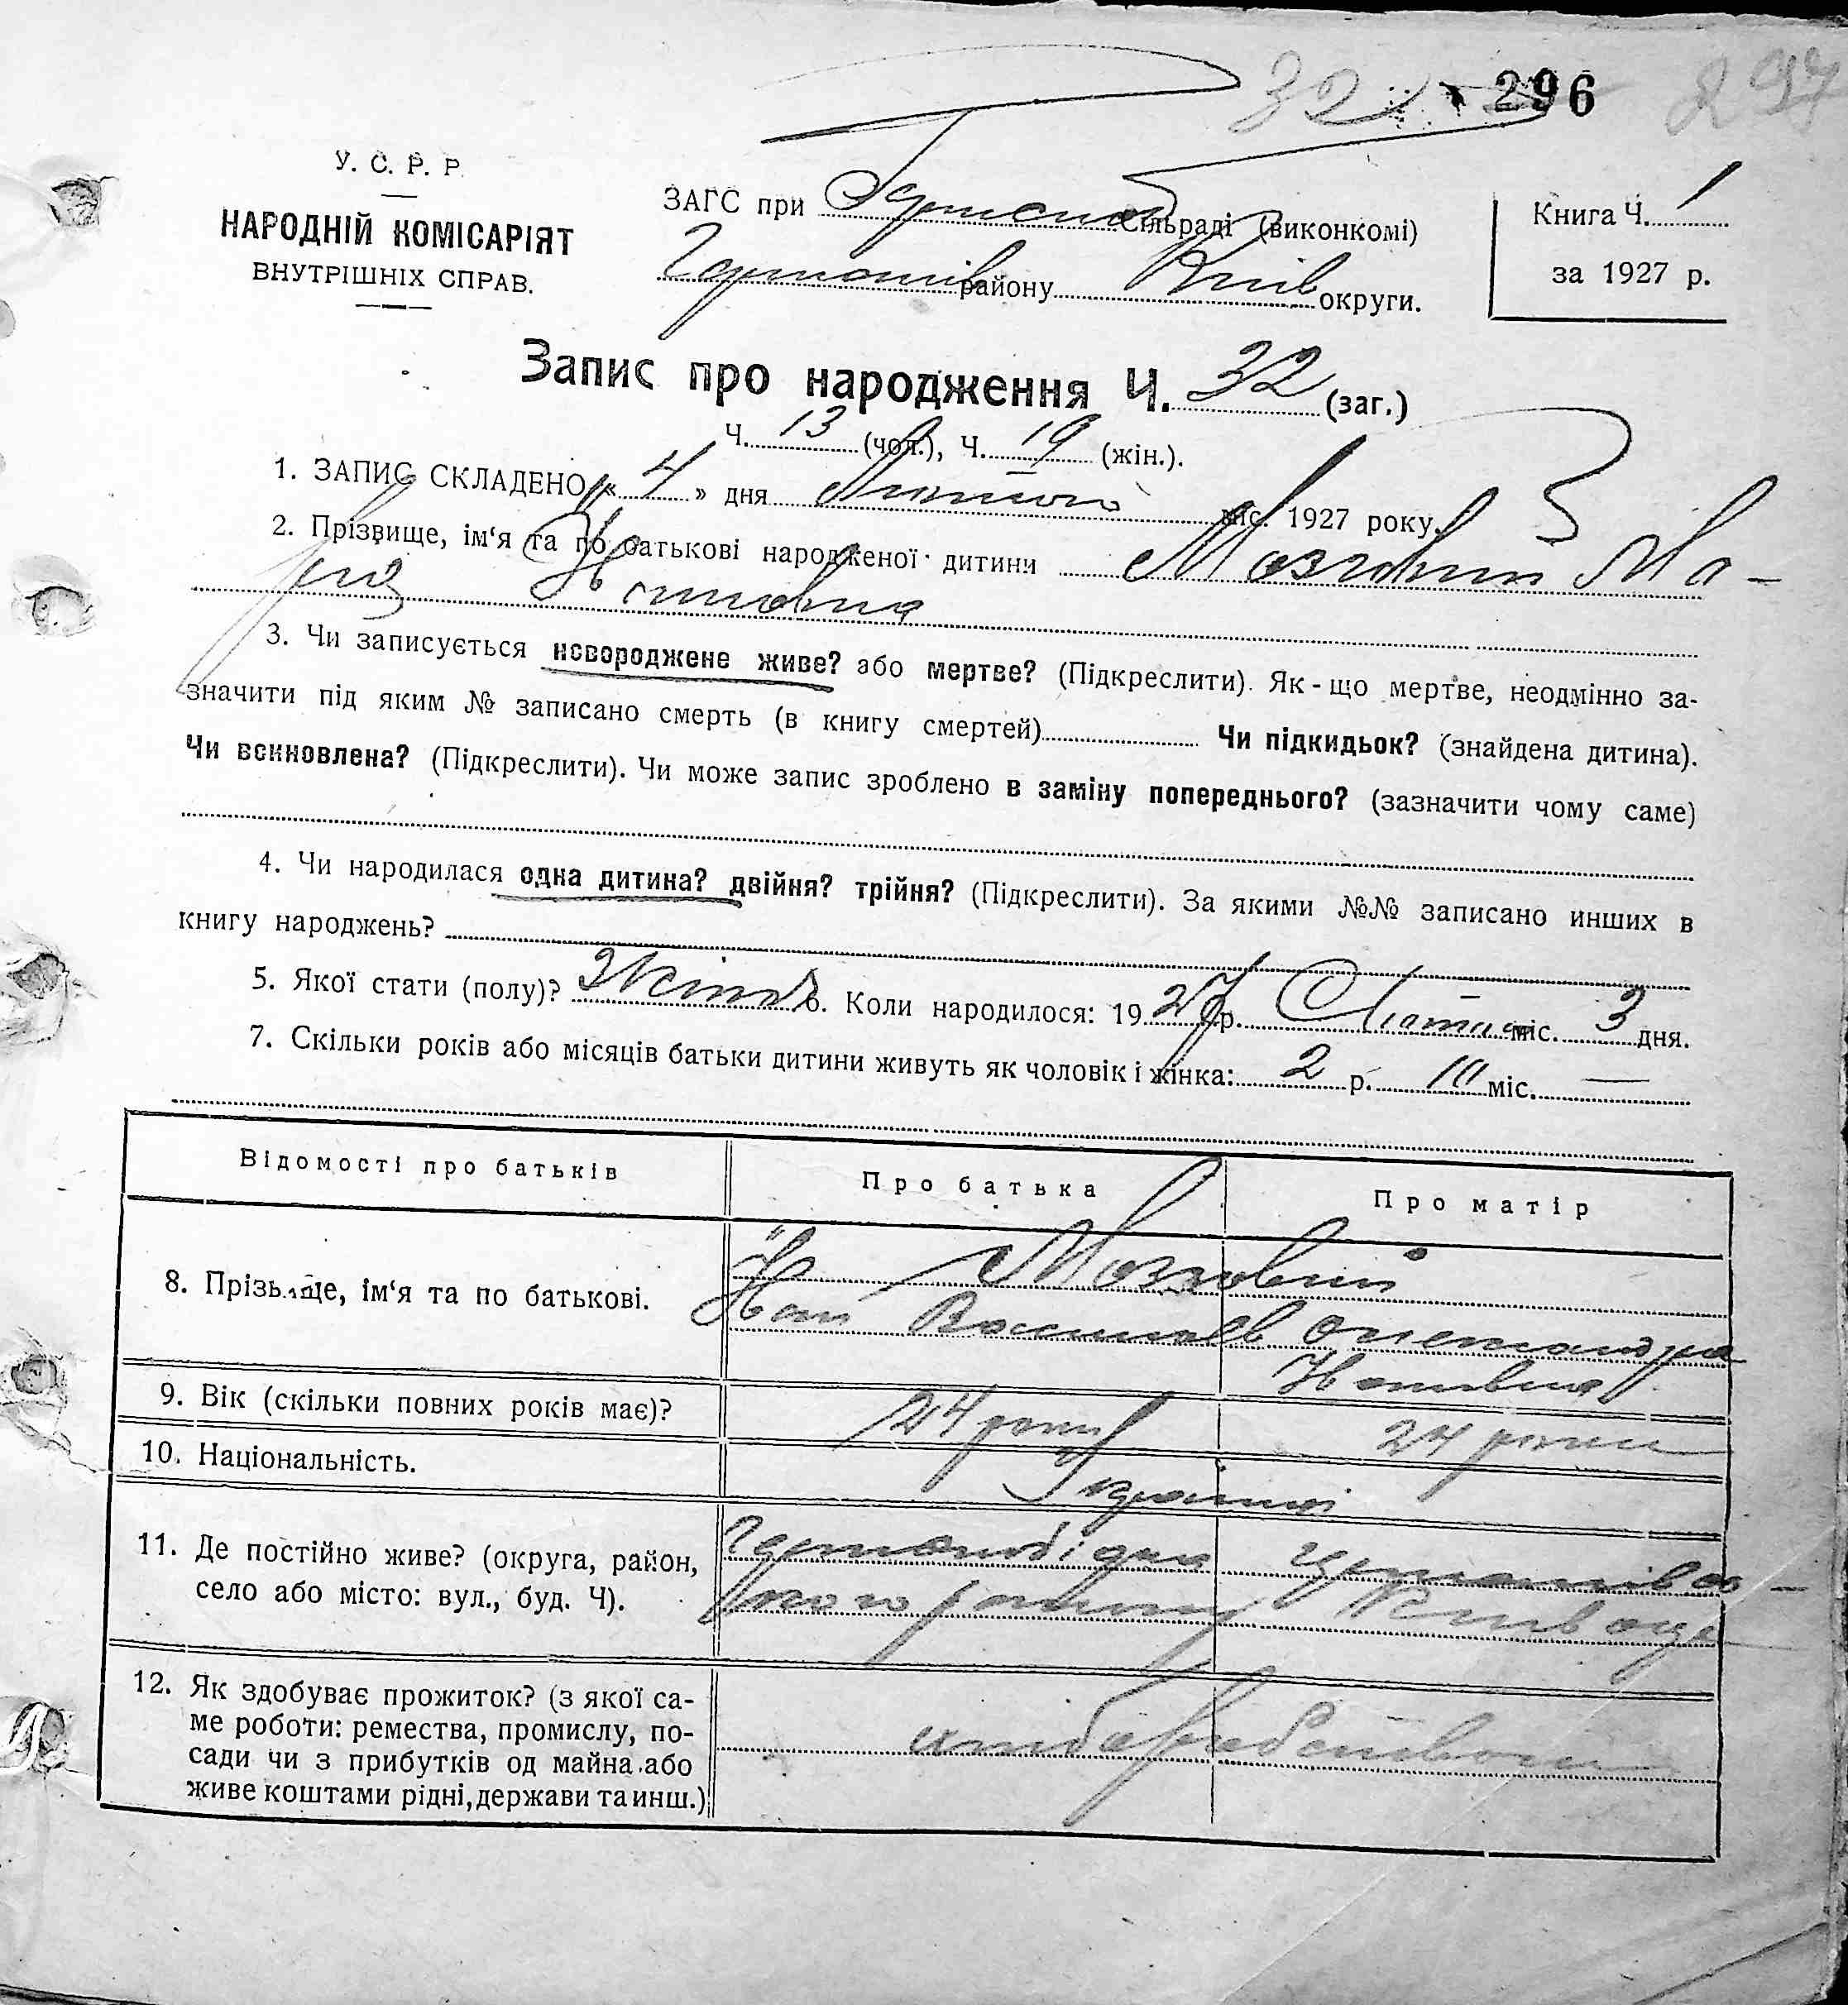 32 296 297
У. С. Р. Р.
НАРОДНІЙ КОМІСАРІЯТ
ВНУТРІШНІХ СПРАВ.
ЗАГС при Сільраді (виконкомі)
району Київ округи.
Книга Ч. 1
за 1927 р.
Запис про народження Ч. 32 (заг.)
Ч. 13 (чол.), Ч. 19 (жін.).
1. ЗАПИС СКЛАДЕНО « 4 » дня Лютого міс. 1927 року.
2. Прізвище, ім‘я та по батькові народженої дитини Мозговий Ма-
рія
3. Чи записується новороджене живе? або мертве? (Підкреслити). Як-що мертве, неодмінно за-
значити під яким № записано смерть (в книгу смертей) Чи підкидьок? (знайдена дитина).
Чи всиновлена? (Підкреслити). Чи може запис зроблено в заміну попереднього? (зазначити чому саме)
4. Чи народилася одна дитина? двійня? трійня? (Підкреслити). За якими №№ записано инших в
книгу народжень?
5. Якої стати (полу)? Жіноч 6. Коли народилося: 1927 р. Лютого міс. 3 дня.
7. Скільки років або місяців батьки дитини живуть як чоловік і жінка: 2 р. 10 міс. —
Відомості про батьків Про батька Про матір
8. Прізвище, ім‘я та по батькові.
Мозговий
Василів Олександра
9. Вік (скільки повних років має)? 24 роки 24 роки
10. Національність.
Україні
11. Де постійно живе? (округа, район,
село або місто: вул., буд. Ч).
ського району Київ окр
12. Як здобуває прожиток? (з якої са-
ме роботи: ремества, промислу, по-
сади чи з прибутків од майна або
живе коштами рідні, держави та инш.)
хліборобством